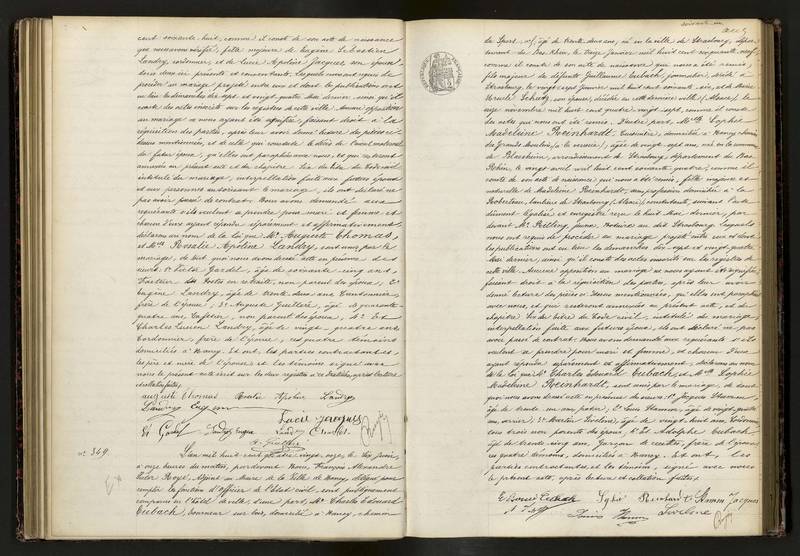 cent soixante huit, comme il conste de son acte de naissance
que nous avons vérifié, fille majeure de Eugène Sébastien
Landry, cordonnier, et de Lucie Apoline Jacques, son épouse
ici présents et consentants, lesquels nous ont requis de
procéder au mariage projeté entre eux et dont les publications ont
eu lieu les dimanches dix sept et vingt quatre Mai dernier, ainsi qu'il
conste des actes inscrits sur les registres de cette ville. Aucune opposition
au mariage ne nous ayant été signifiée, faisant droit à la
réquisition des parties, après leur avoir donné lecture des pièces ci
dessus mentionnées, et de celle qui constate le décès de l'aïeul maternel
du futur époux, qu'elles ont paraphées avec nous, et qui resteront
annexées au présent acte et du chapitre six du titre du Code civil
intitulé du mariage, interpellation faite aux futurs époux
et aux personnes autorisant le mariage, ils ont déclaré ne
pas avoir passé de contrat. Nous avons demandé aux
requérants s'ils veulent se prendre pour mari et femme, et
chacun d'eux ayant répondu séparément et affirmativement,
déclarons au nom de la loi que Mr Auguste Thomas
et Mlle Rosalie Apoline Landry, sont unis par le
mariage, de tout quoi nous avons dressé acte en présence des
sieurs 1° Victor Gardel, âgé de soixante cinq ans,
facteur des Postes en retraite, non parent des époux, 2°
Eugène Landry, âgé de trente deux ans, Cordonnier,
frère de l'épouse, 3° Auguste Guillère, âgé de quarante
quatre ans, Cafetier, non parent des époux, 4° Et
Charles Lucien Landry, âgé de vingt quatre ans,
Cordonnier, frère de l'épouse, ces quatre témoins
domiciliés à Nancy. Et ont, les parties contractantes,
les père et mère de l'épouse et les témoins signé avec
nous le présent acte inscrit sur les deux registres à ce destinés, après lecture
et collation faites,
auguste thomas Rosalie Apoline Landry
Landry Eugene Lucie jacques
Landry Eugène Landry Charles
A. Guillère
N° 349.
L'an mil huit cent quatre vingt onze, le six juin,
à onze heures du matin, pardevant Nous, François Alexandre
Victor Royé, Adjoint au Maire de la Ville de Nancy, délégué pour
remplir les fonctions d'officier de l'état civil, sont publiquement
comparus en l'hôtel de ville, d'une part, Mr Charles Edouard
Eubach, tourneur sur bois, domicilié à Nancy, chemin
soixante un
du Sport, n° 1, âgé de trente deux ans, né en la ville de Strasbourg, dépar-
tement du Bas Rhin, le onze Janvier mil huit cent cinquante neuf,
comme il conste de son acte de naissance qui nous a été remis,
fils majeur de défunts Guillaume Eubach, journalier, décédé à
Strasbourg, le vingt sept janvier mil huit cent soixante six, et de Marie
Ursule Schutz, son épouse, décédée en cette dernière ville (Alsace), le
onze novembre mil huit cent quatre vingt sept, comme il conste
des actes qui nous ont été remis. D'autre part, Mlle Sophie
Madeleine Reinhardt, Cuisinière, domiciliée à Nancy, chemin
des Grands Moulins, âgée de vingt sept ans, née en la commune
de Blaesheim, arrondissement de Strasbourg, département du Bas
Rhin, le vingt avril mil huit cent soixante quatre, comme il
conste de son acte de naissance qui nous a été remis, fille majeure et
naturelle de Madeleine Reinhardt, sans profession, domiciliée à la
Robertsau, banlieue de Strasbourg (Alsace), consentante, suivant l'acte
dûment légalisé et enregistré reçu le huit Mai dernier, par
devant Mr Notaire au dit Strasbourg. Lesquels
nous ont requis de procéder au mariage projeté entre eux et dont
les publications ont eu lieu les dimanches dix sept et vingt quatre
Mai dernier, ainsi qu'il conste des actes inscrits sur les registres de
cette ville. Aucune opposition au mariage ne nous ayant été signifiée,
faisant droit à la réquisition des parties, après leur avoir
donné lecture des pièces ci dessus mentionnées, qu'elles ont paraphées
avec nous, et qui resteront annexées au présent acte, et du
chapitre six du titre du Code civil, intitulé du mariage,
interpellation faite aux futurs époux, ils ont déclaré ne pas
avoir passé de contrat. Nous avons demandé aux requérants s'ils
veulent se prendre pour mari et femme, et chacun d'eux
ayant répondu séparément et affirmativement, déclarons au nom
de la loi que Mr Charles Edouard Eubach et Mlle Sophie
Madeleine Reinhardt, sont unis par le mariage, de tout
quoi nous avons dressé acte en présence des sieurs 1° Jacques
âgé de trente un ans, 2° Louis Hamm, âgé de vingt quatre
ans, 3° Martin âgé de vingt huit ans,
tous trois non parents des époux, 4° Et Adolphe Eubach
âgé de trente cinq ans, Garçon de recettes, frère de l'époux
ces quatre témoins, domiciliés à Nancy. Et ont, les
parties contractantes et les témoins, signé avec nous
le présent acte, après lecture et collation faites,
Eubach Sophie Reinhard Jacques
Louis Hamm